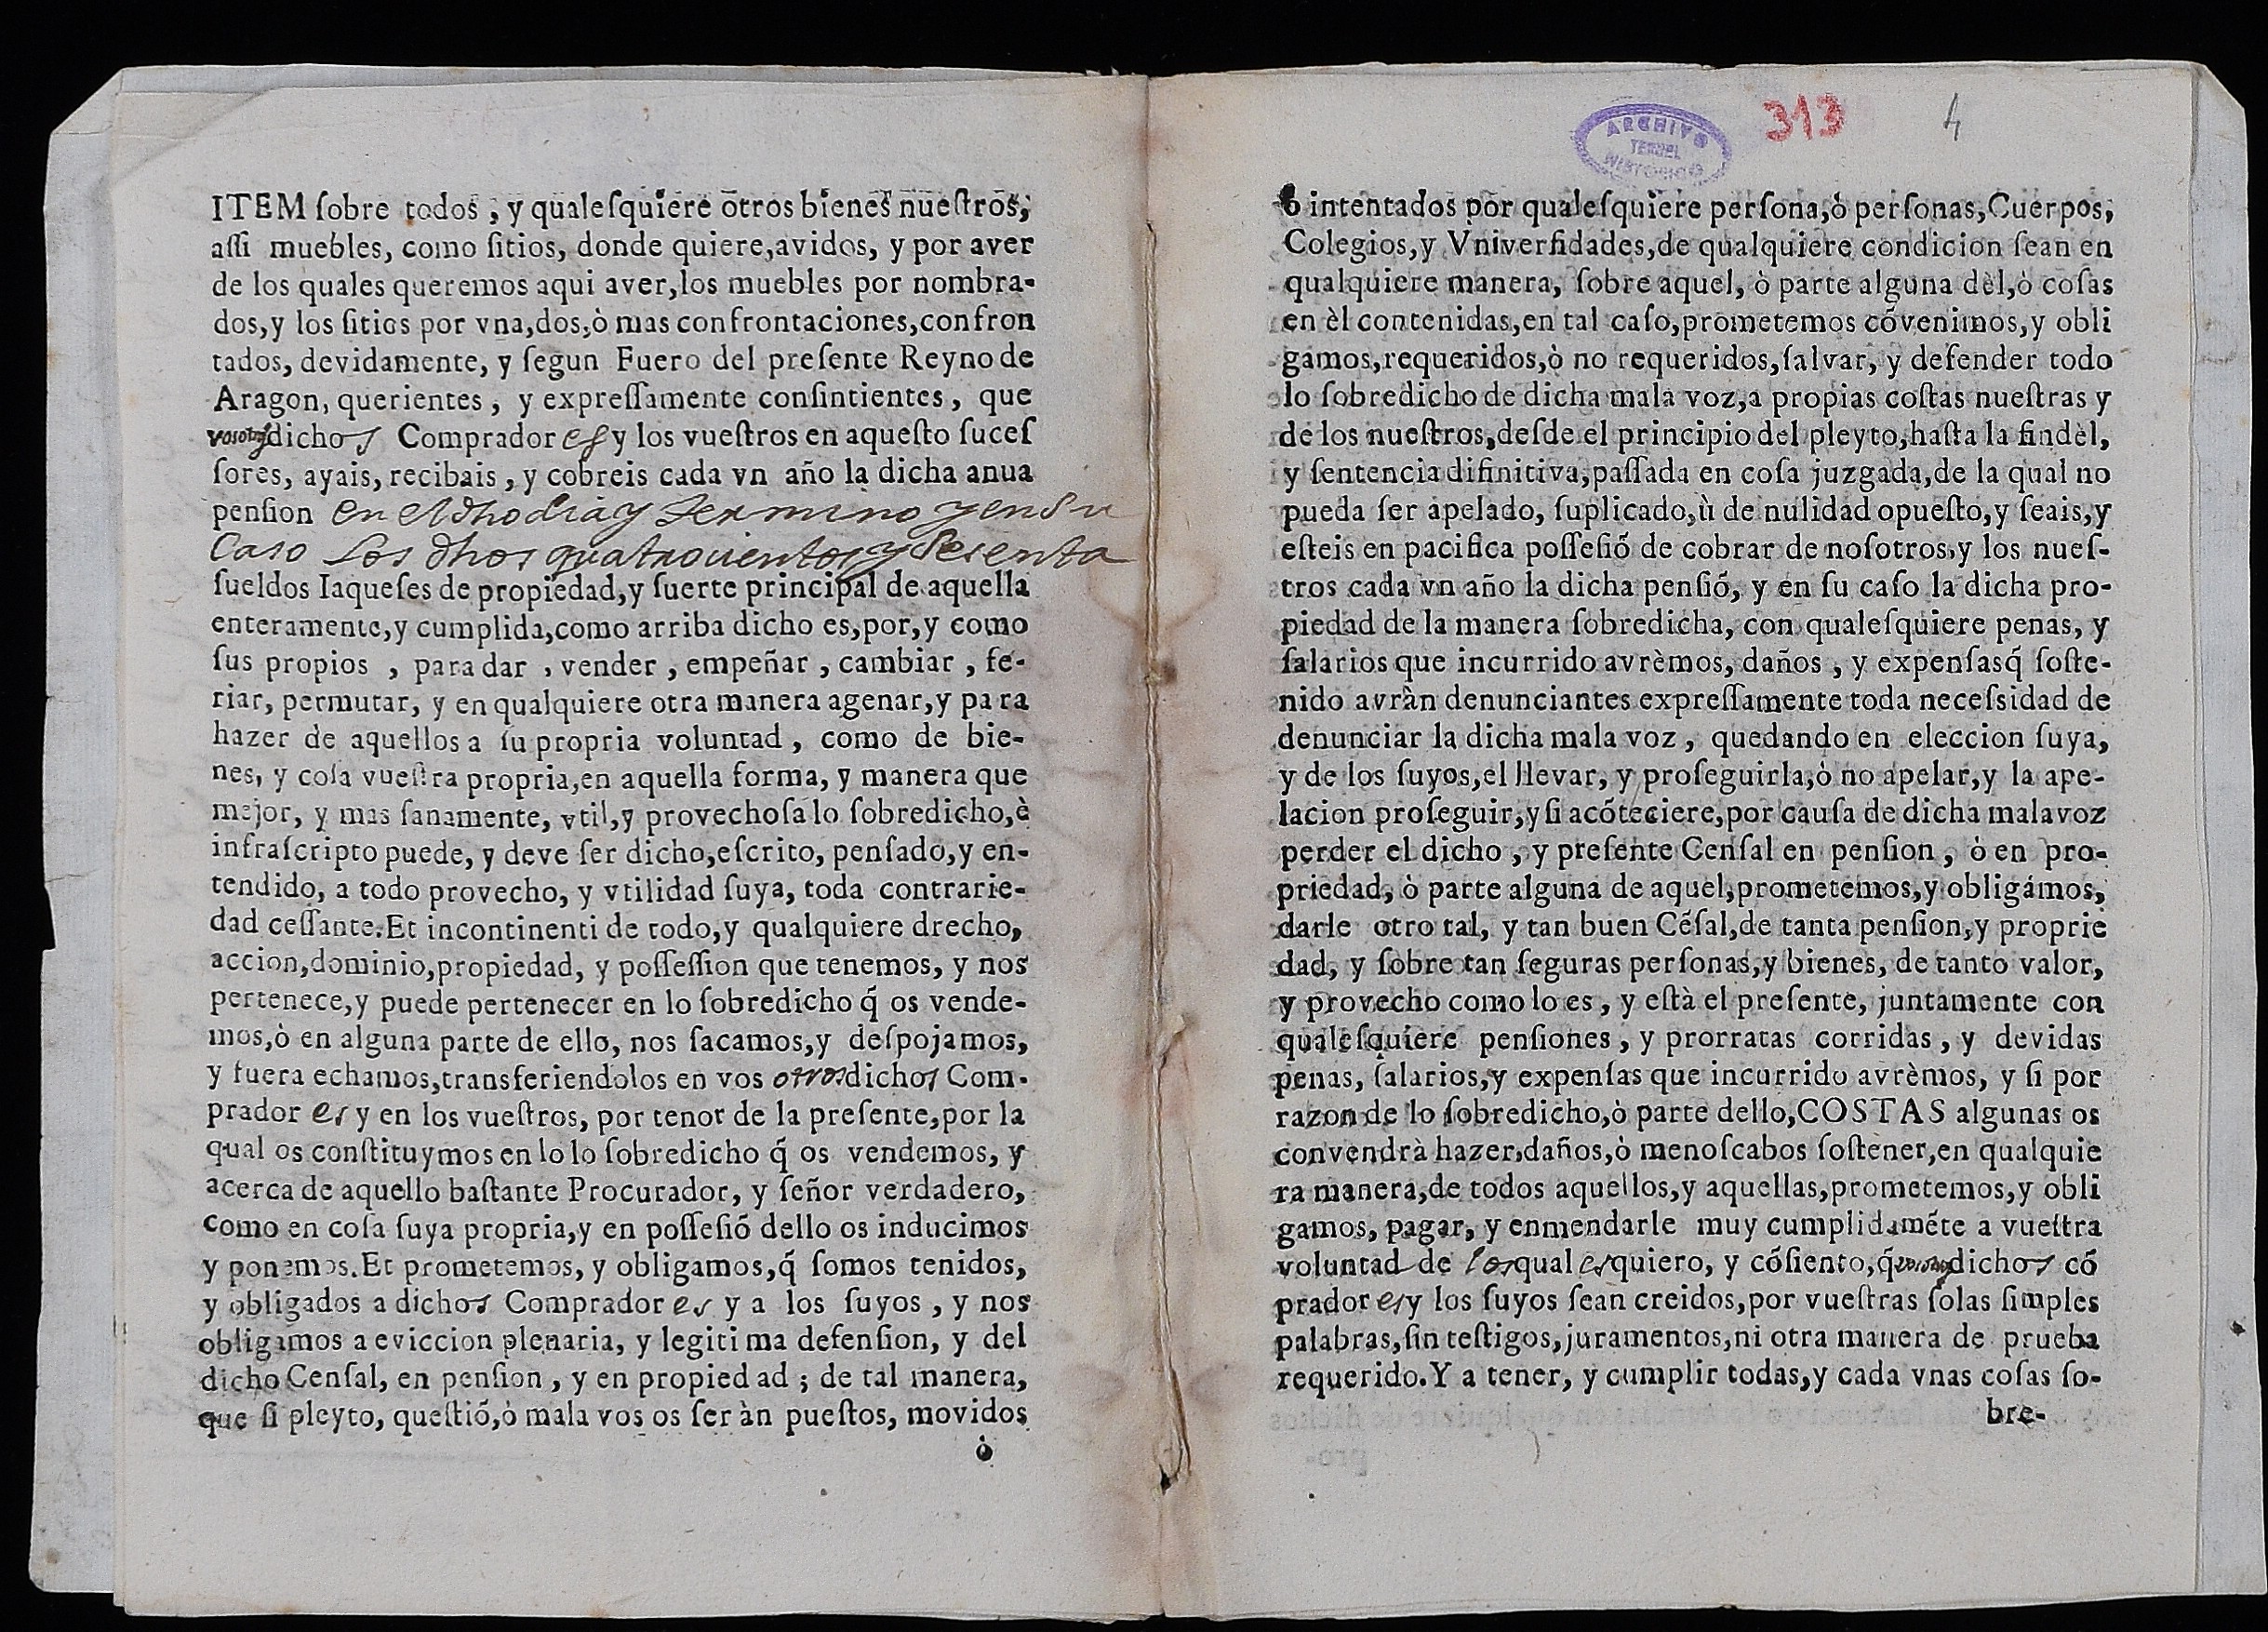 ITEM ſobre todos, y qualeſquiere otros bienes nueſtros,
aſſi muebles, como ſitios, donde quiere, avidos, y por aver
de los quales queremos aqui aver, los muebles por nombra-
dos, y los ſitios por vna, dos, ò mas confrontaciones, confron
tados, devidamente, y ſegun Fuero del preſente Reyno de
Aragon, querientes, y expreſſamente conſintientes, que
vosotros dichos Compradores y los vueſtros en aqueſto ſuceſ
ſores, ayais, recibais, y cobreis cada vn año la dicha anua
penſion en el dho dia y termino y en su
Caso Los dhos quatrocientos y sesenta
ſueldos Iaqueſes de propiedad, y ſuerte principal de aquella
enteramente, y cumplida, como arriba dicho es, por, y como
ſus propios, para dar, vender, empeñar, cambiar, fe-
riar, permutar, y en qualquiere otra manera agenar, y para
hazer de aquellos a ſu propria voluntad, como de bie-
nes, y coſa vueſtra propria, en aquella forma, y manera que
mejor, y mas ſanamente, vtil, y provechoſa lo ſobredicho, è
infraſcripto puede, y deve ſer dicho, eſcrito, penſado, y en-
tendido, a todo provecho, y vtilidad ſuya, toda contrarie-
dad ceſſante. Et incontinenti de todo, y qualquiere drecho,
accion, dominio, propiedad, y poſſeſſion que tenemos, y nos
pertenece, y puede pertenecer en lo ſobredicho q̃ os vende-
mos, ò en alguna parte de ello, nos ſacamos, y deſpojamos,
y fuera echamos, transferiendolos en vos otros dichos Com-
pradores y en los vueſtros, por tenor de la preſente, por la
qual os conſtituymos en lo lo ſobredicho q̃ os vendemos, y
acerca de aquello baſtante Procurador, y ſeñor verdadero,
como en coſa ſuya propria, y en poſſeſió dello os inducimos
y ponemos. Et prometemos, y obligamos, q̃ ſomos tenidos,
y obligados a dichos Compradores y a los ſuyos, y nos
obligamos a eviccion plenaria, y legitima defenſion, y del
dicho Cenſal, en penſion, y en propiedad; de tal manera,
que ſi pleyto, queſtió, ò mala vos os ſeràn pueſtos, movidos
ò
ARCHIVO
TERUEL
HISTORICO
313
4
ò intentados por qualeſquiere perſona, ò perſonas, Cuerpos,
Colegios, y Vniverſidades, de qualquiere condicion ſean en
qualquiere manera, ſobre aquel, ò parte alguna dèl, ò coſas
en èl contenidas, en tal caſo, prometemos cóvenimos, y obli
gamos, requeridos, ò no requeridos, ſalvar, y defender todo
lo ſobredicho de dicha mala voz, a propias coſtas nueſtras y
de los nueſtros, deſde el principio del pleyto, haſta la fin dèl,
y ſentencia difinitiva, paſſada en coſa juzgada, de la qual no
pueda ſer apelado, ſuplicado, ù de nulidad opueſto, y ſeais, y
eſteis en pacifica poſſeſió de cobrar de noſotros, y los nueſ-
tros cada vn año la dicha penſió, y en ſu caſo la dicha pro-
piedad de la manera ſobredicha, con qualeſquiere penas, y
ſalarios que incurrido avrèmos, daños, y expenſas q̃ ſoſte-
nido avràn denunciantes expreſſamente toda neceſsidad de
denunciar la dicha mala voz, quedando en eleccion ſuya,
y de los ſuyos, el llevar, y proſeguirla, ò no apelar, y la ape-
lacion proſeguir, y ſi acóteciere, por cauſa de dicha mala voz
perder el dicho, y preſente Cenſal en penſion, ò en pro-
priedad, ò parte alguna de aquel, prometemos, y obligámos,
darle otro tal, y tan buen Céſal, de tanta penſion, y proprie
dad, y ſobre tan ſeguras perſonas, y bienes, de tanto valor,
y provecho como lo es, y eſtà el preſente, juntamente con
qualeſquiere penſiones, y prorratas corridas, y devidas
penas, ſalarios, y expenſas que incurrido avrèmos, y ſi por
razon de lo ſobredicho, ò parte dello, COSTAS algunas os
convendrà hazer, daños, ò menoſcabos ſoſtener, en qualquie
ra manera, de todos aquellos, y aquellas, prometemos, y obli
gamos, pagar, y enmendarle muy cumplidaméte a vueſtra
voluntad de los quales quiero, y cóſiento, q̃ vosotros dichos có
pradores y los ſuyos ſean creidos, por vueſtras ſolas ſimples
palabras, ſin teſtigos, juramentos, ni otra manera de prueba
requerido. Y a tener, y cumplir todas, y cada vnas coſas ſo-
bre-